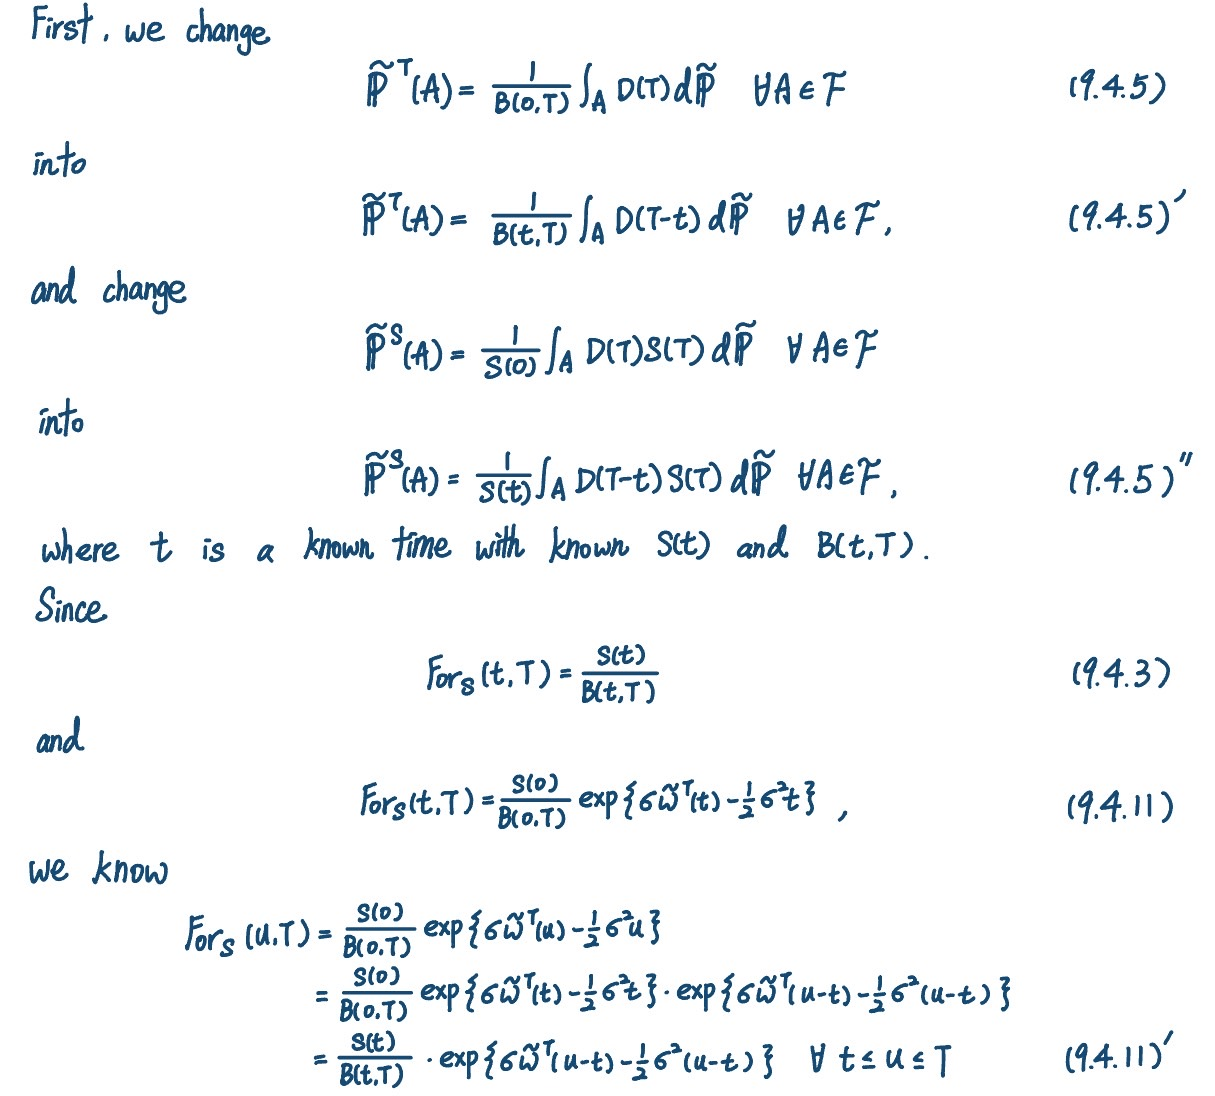 First, we change
$\widetilde{\mathbb{P}}^T(A) = \frac{1}{B(0,T)} \int_A D(T) d\widetilde{\mathbb{P}} \quad \forall A \in \mathcal{F}$ (9.4.5)
into
$\widetilde{\mathbb{P}}^T(A) = \frac{1}{B(t,T)} \int_A D(T-t) d\widetilde{\mathbb{P}} \quad \forall A \in \mathcal{F},$ (9.4.5)$'$
and change
$\widetilde{\mathbb{P}}^S(A) = \frac{1}{S(0)} \int_A D(T)S(T) d\widetilde{\mathbb{P}} \quad \forall A \in \mathcal{F}$
into
$\widetilde{\mathbb{P}}^S(A) = \frac{1}{S(t)} \int_A D(T-t)S(T) d\widetilde{\mathbb{P}} \quad \forall A \in \mathcal{F},$ (9.4.5)$''$
where t is a known time with known S(t) and B(t,T).
Since
$For_S(t,T) = \frac{S(t)}{B(t,T)}$ (9.4.3)
and
$For_S(t,T) = \frac{S(0)}{B(0,T)} \exp\{\sigma \widetilde{W}^T(t) - \frac{1}{2}\sigma^2 t\},$ (9.4.11)
we know
$For_S(u,T) = \frac{S(0)}{B(0,T)} \exp\{\sigma \widetilde{W}^T(u) - \frac{1}{2}\sigma^2 u\}$
$= \frac{S(0)}{B(0,T)} \exp\{\sigma \widetilde{W}^T(t) - \frac{1}{2}\sigma^2 t\} \cdot \exp\{\sigma \widetilde{W}^T(u-t) - \frac{1}{2}\sigma^2(u-t)\}$
$= \frac{S(t)}{B(t,T)} \cdot \exp\{\sigma \widetilde{W}^T(u-t) - \frac{1}{2}\sigma^2(u-t)\} \quad \forall t \le u \le T$ (9.4.11)$'$